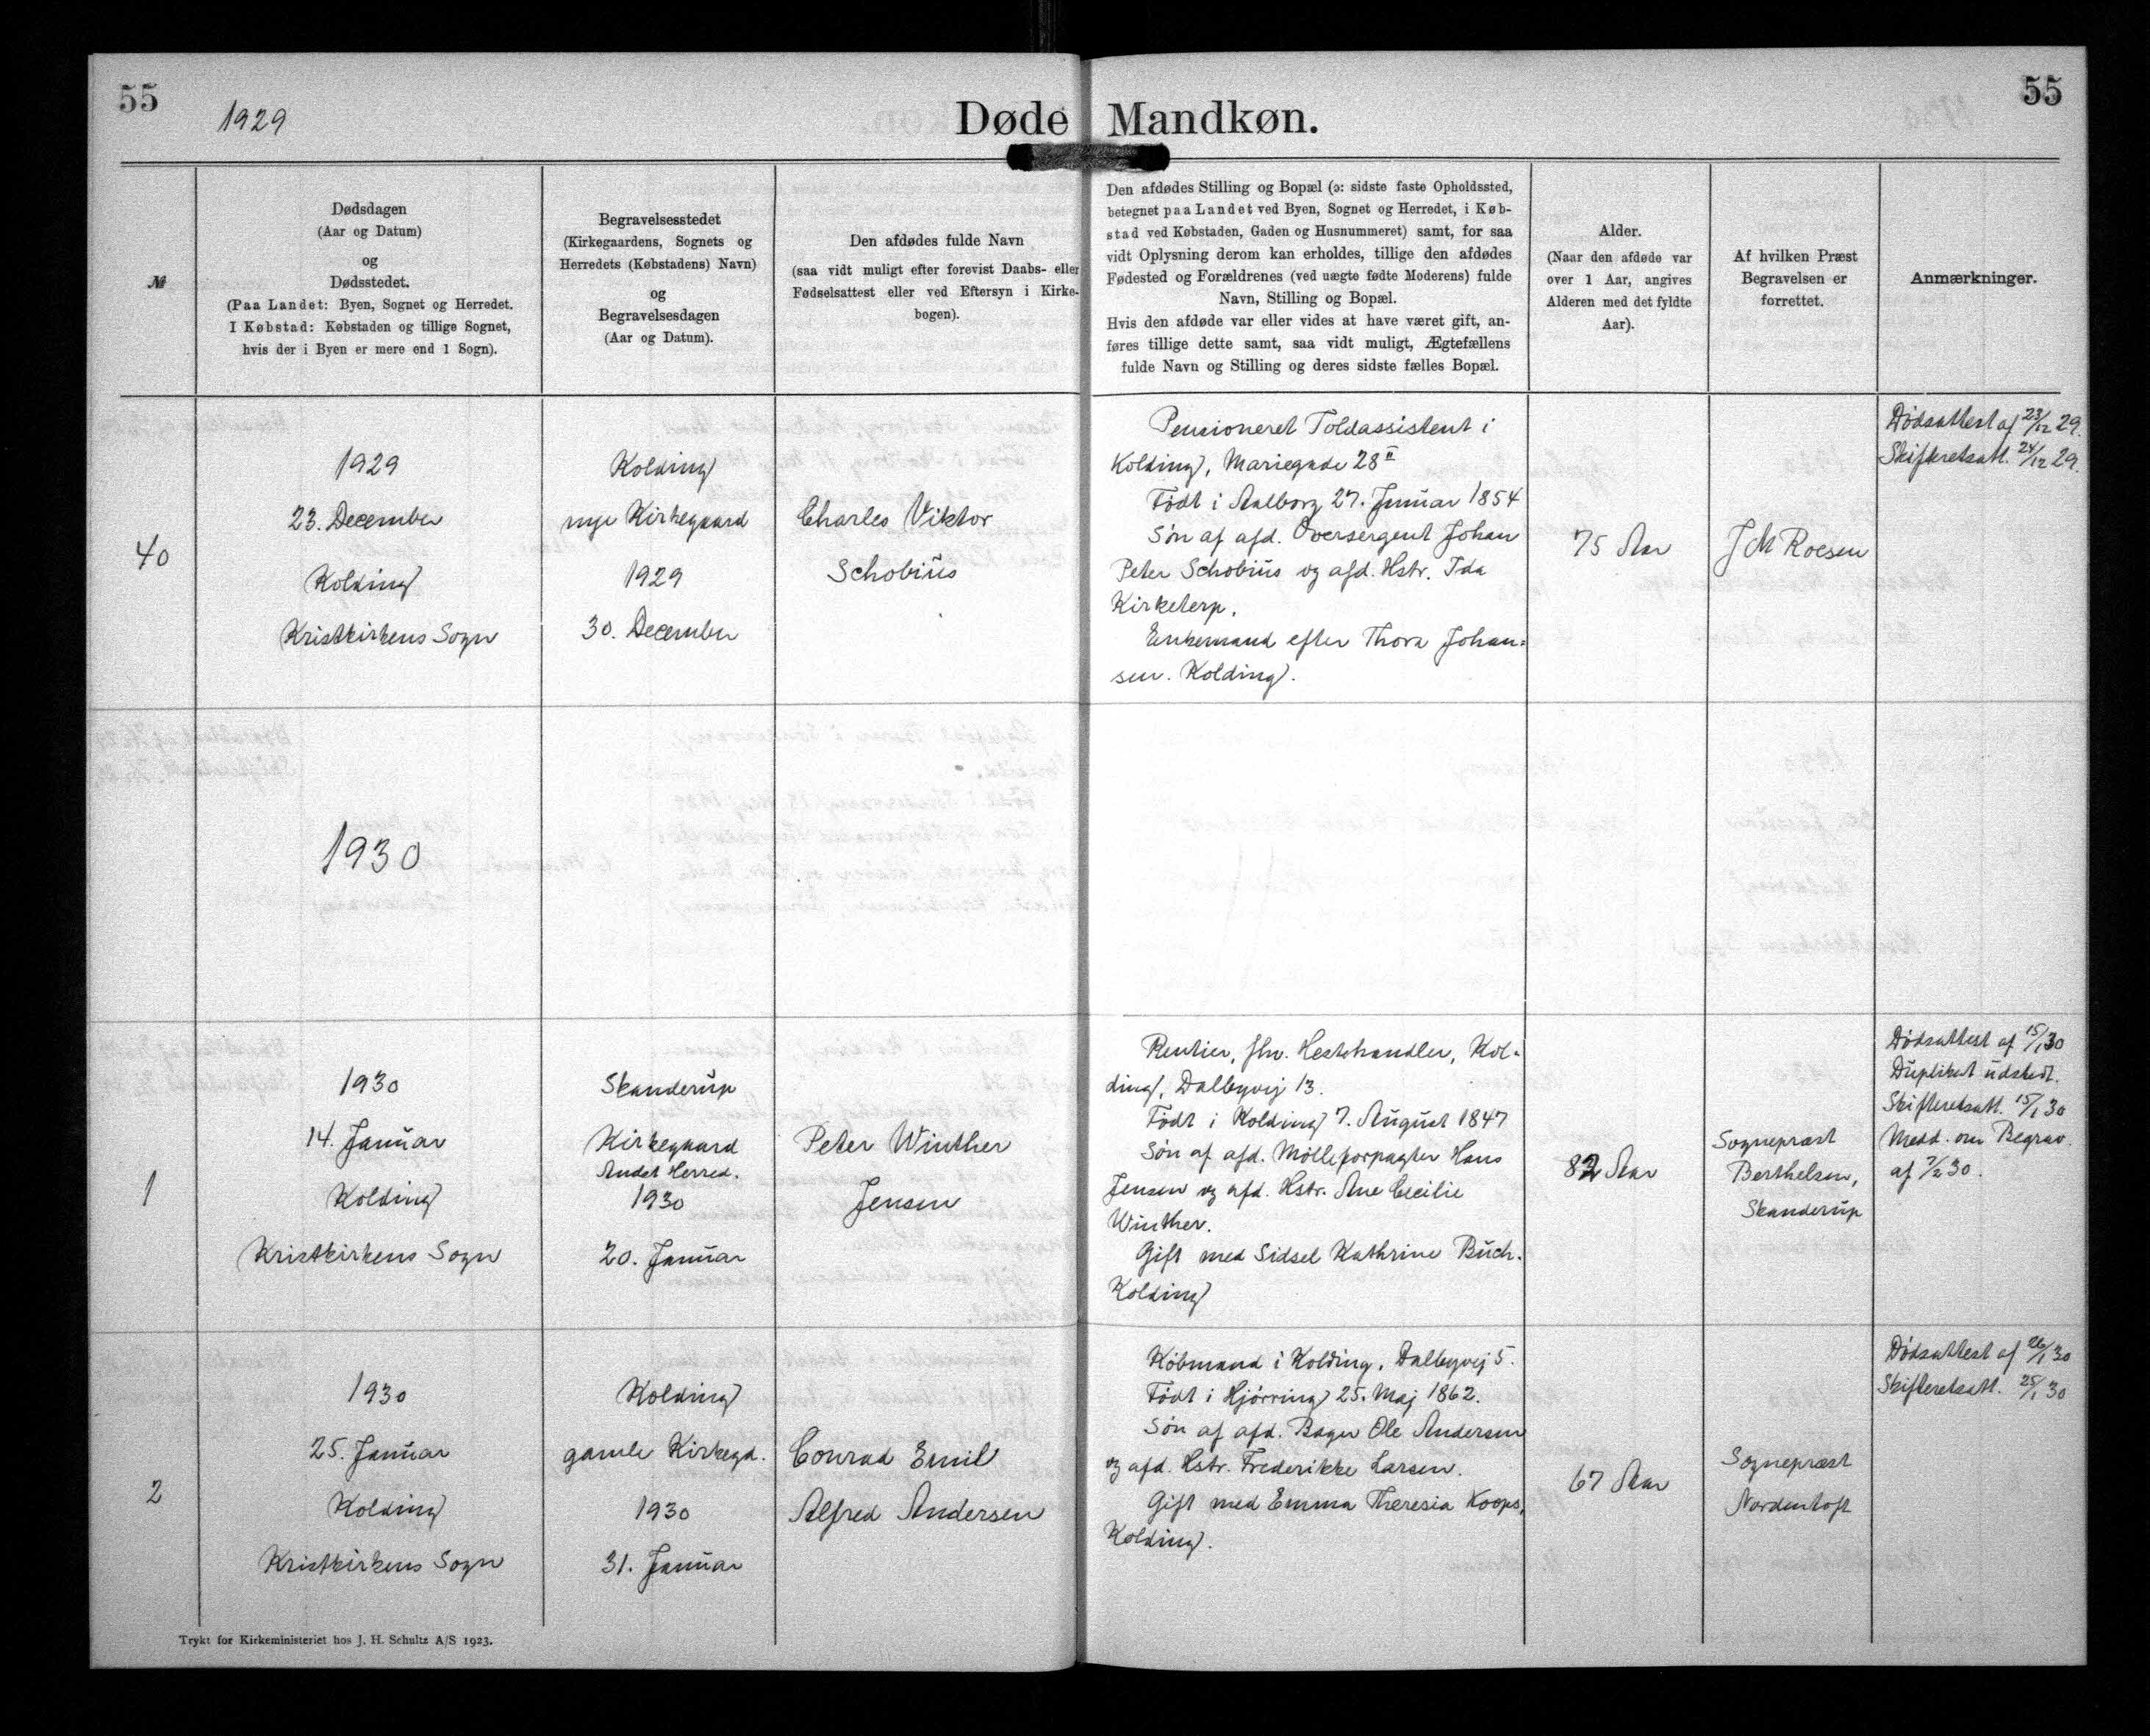 55
1929
Døde Mandkøn.
55
№
Dødsdagen
(Aar og Datum)
og
Dødsstedet.
(Paa Landet: Byen, Sognet og Herredet.
I Købstad: Købstaden og tillige Sognet,
hvis der i Byen er mere end 1 Sogn).
Begravelsesstedet
(Kirkegaardens, Sognets og
Herredets (Købstadens) Navn)
og
Begravelsesdagen
(Aar og Datum).
Den afdødes fulde Navn
(saa vidt muligt efter forevist Daabs- eller
Fødselsattest eller ved Eftersyn i Kirke-
bogen).
Den afdødes Stilling og Bopæl (ɔ: sidste faste Opholdssted,
betegnet paa Landet ved Byen, Sognet og Herredet, i Køb-
stad ved Købstaden, Gaden og Husnummeret) samt, for saa
vidt Oplysning derom kan erholdes, tillige den afdødes
Fødested og Forældrenes (ved uægte fødte Moderens) fulde
Navn, Stilling og Bopæl.
Hvis den afdøde var eller vides at have været gift, an-
føres tillige dette samt, saa vidt muligt, Ægtefællens
fulde Navn og Stilling og deres sidste fælles Bopæl.
Alder.
(Naar den afdøde var
over 1 Aar, angives
Alderen med det fyldte
Aar).
Af hvilken Præst
Begravelsen er
forrettet.
Anmærkninger.
40
1929
23. December
Kolding
Kristkirkens Sogn
Kolding
nye Kirkegaard
1929
30. December
Charles Viktor
Schobius
Pensioneret Toldassistent i
Kolding, Mariegade 28 II
Født i Aalborg 27. Januar 1854
Søn af afd. Oversergent Johan
Peter Schobius og afd. Hstr. Ida
Kirketerp.
Enkemand efter Thora Johan=
sen. Kolding.
75 Aar
J M Roesen
Dødsattest af 23/12 29.
Skifteretsatt. 24/12 29.
1930
1
1930
14. Januar
Kolding
Kristkirkens Sogn
Skanderup
Kirkegaard
Andst Herred.
1930
20. Januar
Peter Winther
Jensen
Rentier, fhv. Hestehandler, Kol-
ding, Dalbyvej 13.
Født i Kolding 7. August 1847
Søn af afd. Mølleforpagter Hans
Jensen og afd. Hstr. Ane Cecilie
Winther.
Gift med Sidsel Kathrine Buch.
Kolding
82 Aar
Sognepræst
Berthelsen,
Skanderup
Dødsattest af 15/1 30
Duplikat udstedt.
Skifteretsatt. 15/1 30
Medd. om Begrav.
af 7/2 30.
2
1930
25. Januar
Kolding
Kristkirkens Sogn
Kolding
gamle Kirkegd.
1930
31. Januar
Conrad Emil
Alfred Andersen
Købmand i Kolding, Dalbyvej 5.
Født i Hjørring 25. Maj 1862.
Søn af afd. Bager Ole Andersen
og afd. Hstr. Frederikke Larsen.
Gift med Emma Theresia Koops,
Kolding.
67 Aar
Sognepræst
Nordentoft
Dødsattest af 26/1 30
Skifteretsatt. 25/1 30
Trykt for Kirkeministeriet hos J. H. Schultz A/S 1923.